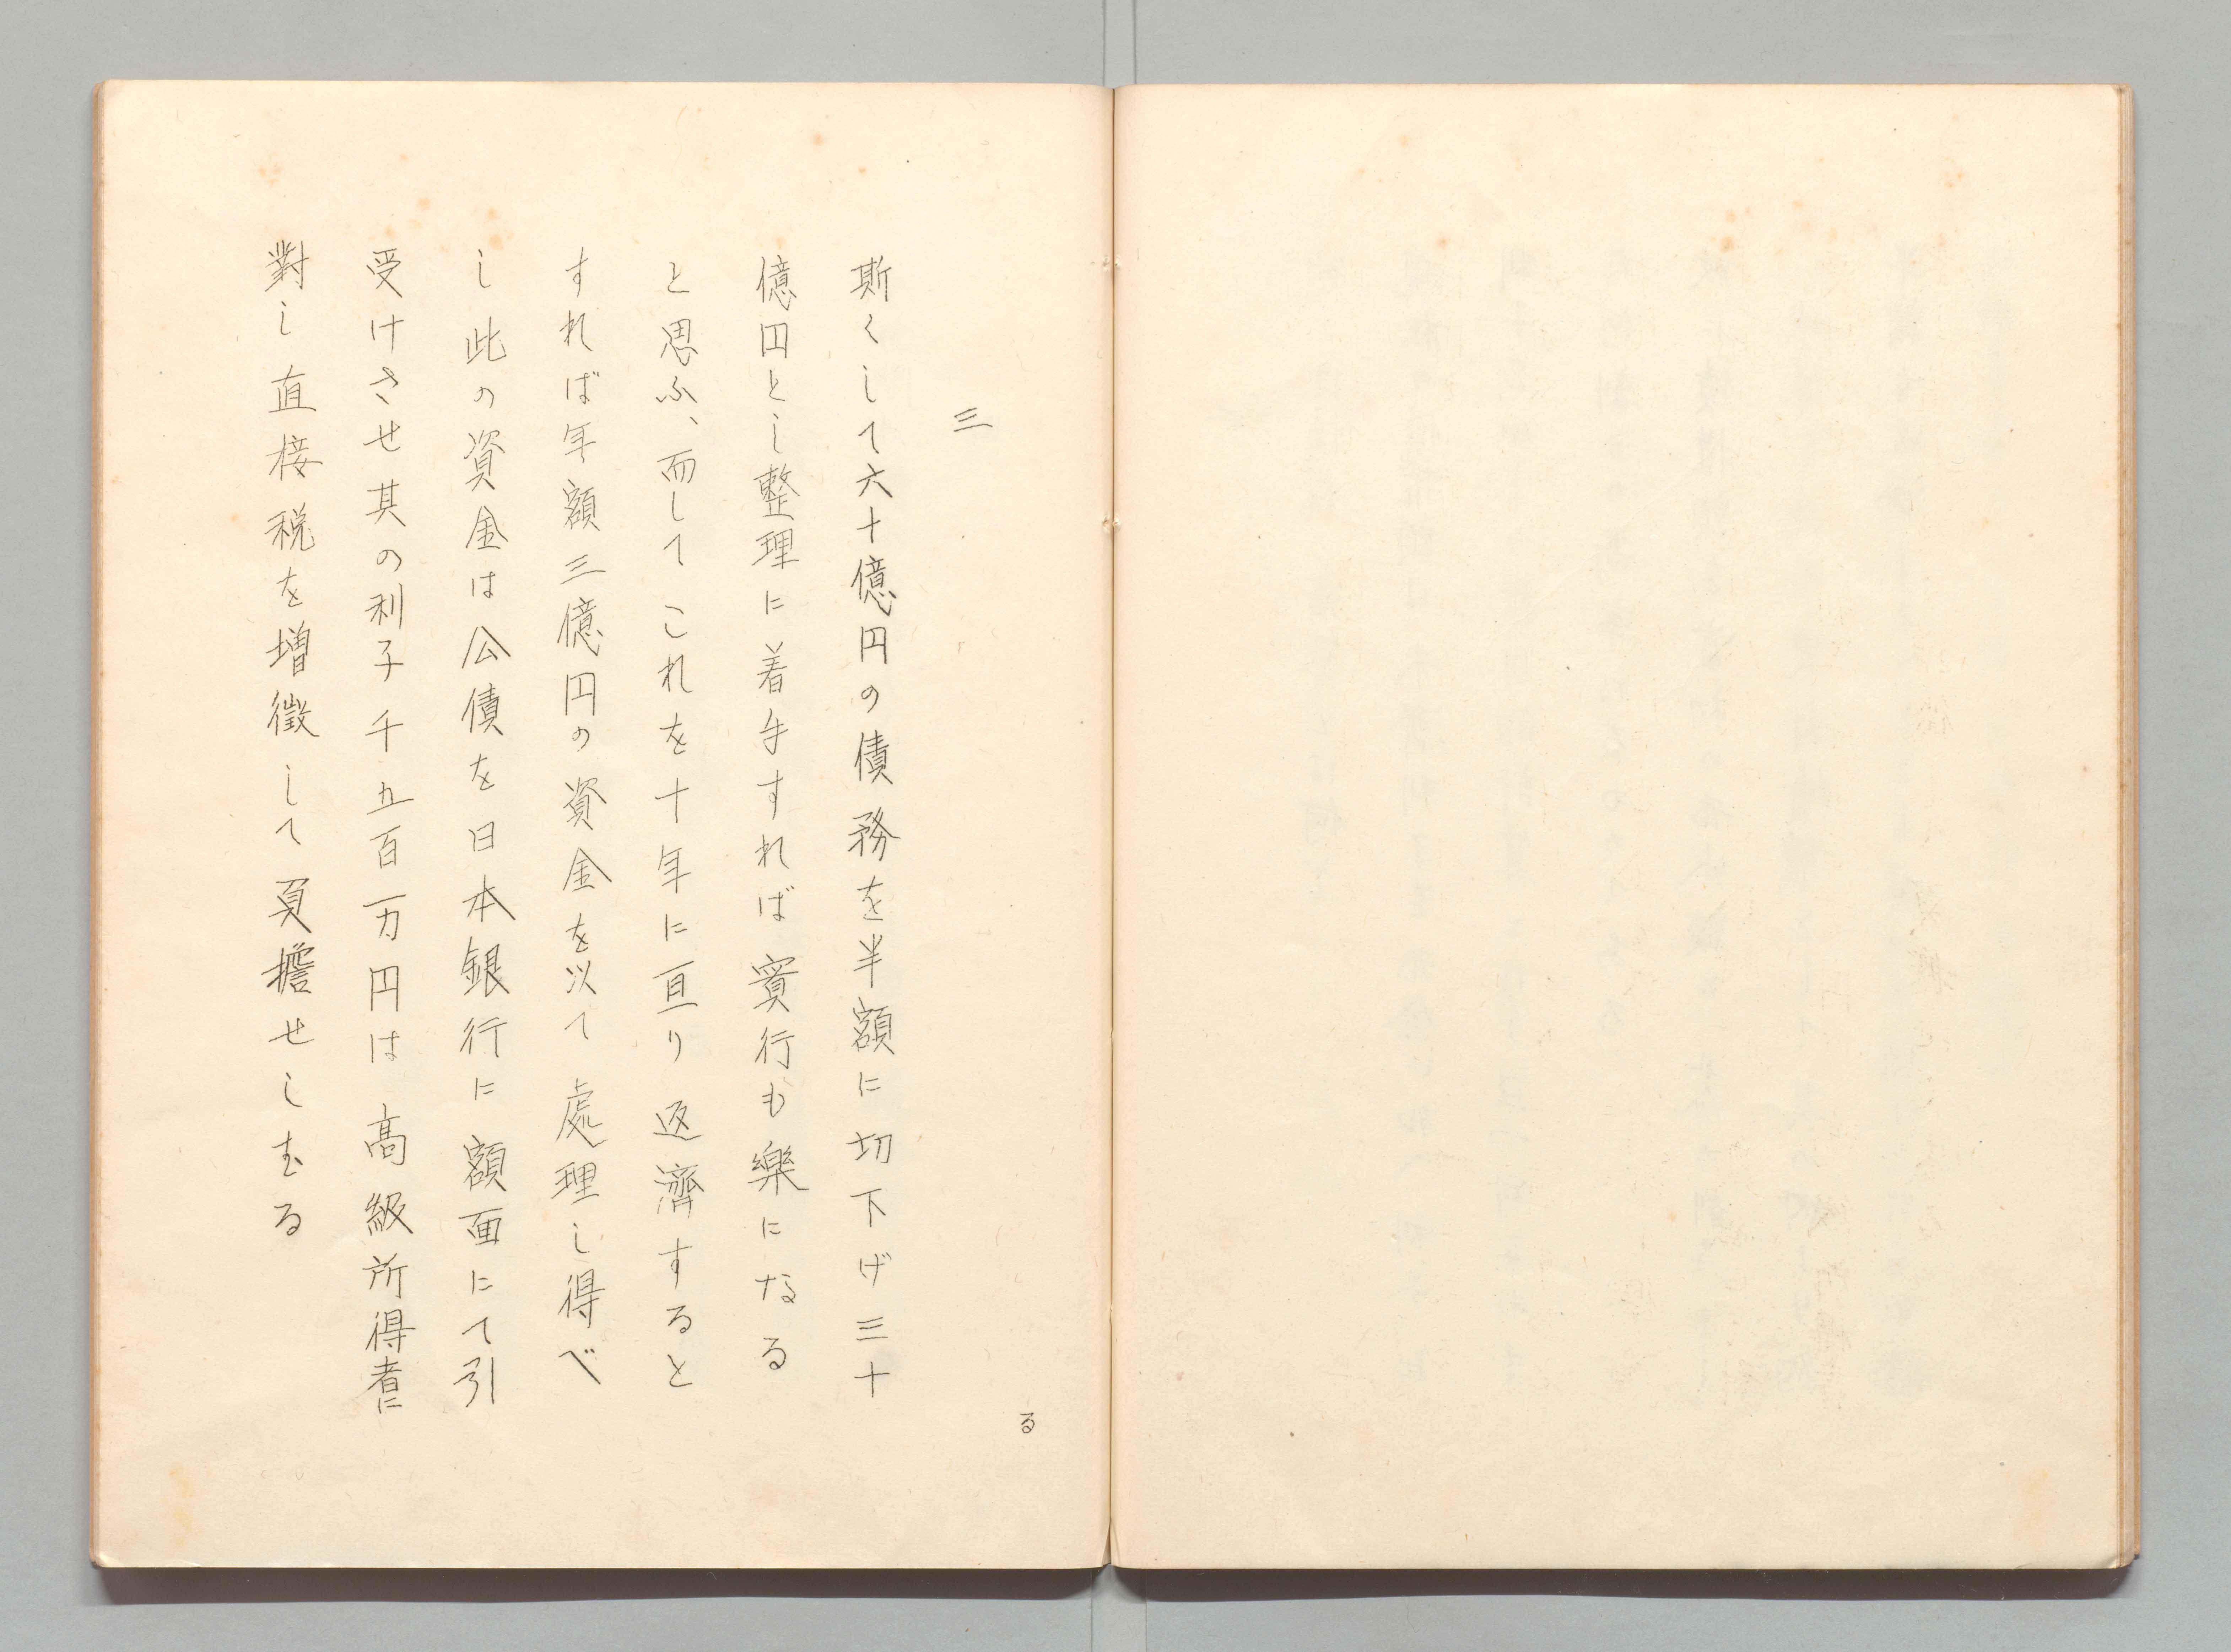 三
斯くして六十億円の債務を半額に切下げ三十
億円とし整理に着手すれば實行も樂になる
と思ふ、而してこれを十年に亘り返濟すると
すれば年額三億円の資金を以て處理し得べ
し此の資金は公債を日本銀行に額面にて引
受けさせ其の利子千五百万円は高級所得者に
對し直接税を増徴して負擔せしむる
る